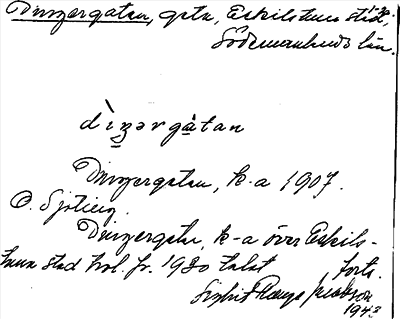 Dingergatan, gata, Eskilstuna stad,
Södermanlands län.
dìŋərgàtan
Dingergatan, k-a 1907.
O. Sjöberg.
Dingergatan, k-a över Eskils-
tuna stad fr. 1920 talet
forts.
1943